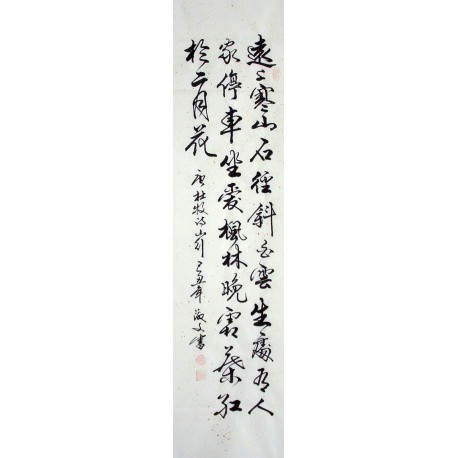 遠〻寒山石徑斜白雲生處有人
家停車坐愛楓林晚霜葉紅
於二月花
唐杜牧詩山行 己丑年 淑文書